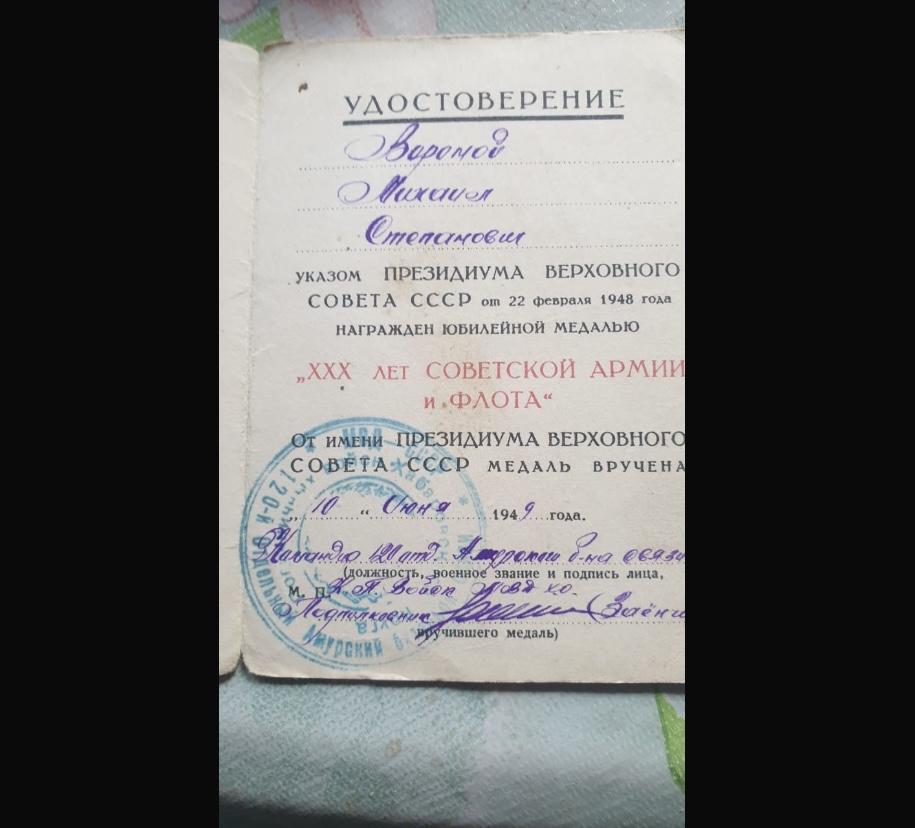 УДОСТОВЕРЕНИЕ
Вороной
Михаил
Степанович
УКАЗОМ ПРЕЗИДИУМА ВЕРХОВНОГО
СОВЕТА СССР от 22 февраля 1948 года
НАГРАЖДЕН ЮБИЛЕЙНОЙ МЕДАЛЬЮ
„XXX ЛЕТ СОВЕТСКОЙ АРМИИ
И ФЛОТА“
От имени ПРЕЗИДИУМА ВЕРХОВНОГО
СОВЕТА СССР МЕДАЛЬ ВРУЧЕНА
„ 10 “ Июня 1949 года.
120 отд. Амурский б-на связи
(должность, военное звание и подпись лица,
М. П. К. П. Войск МВД х.о.
Подполковник
вручившего медаль)
МВД СССР
120-й Отдельный Амурский